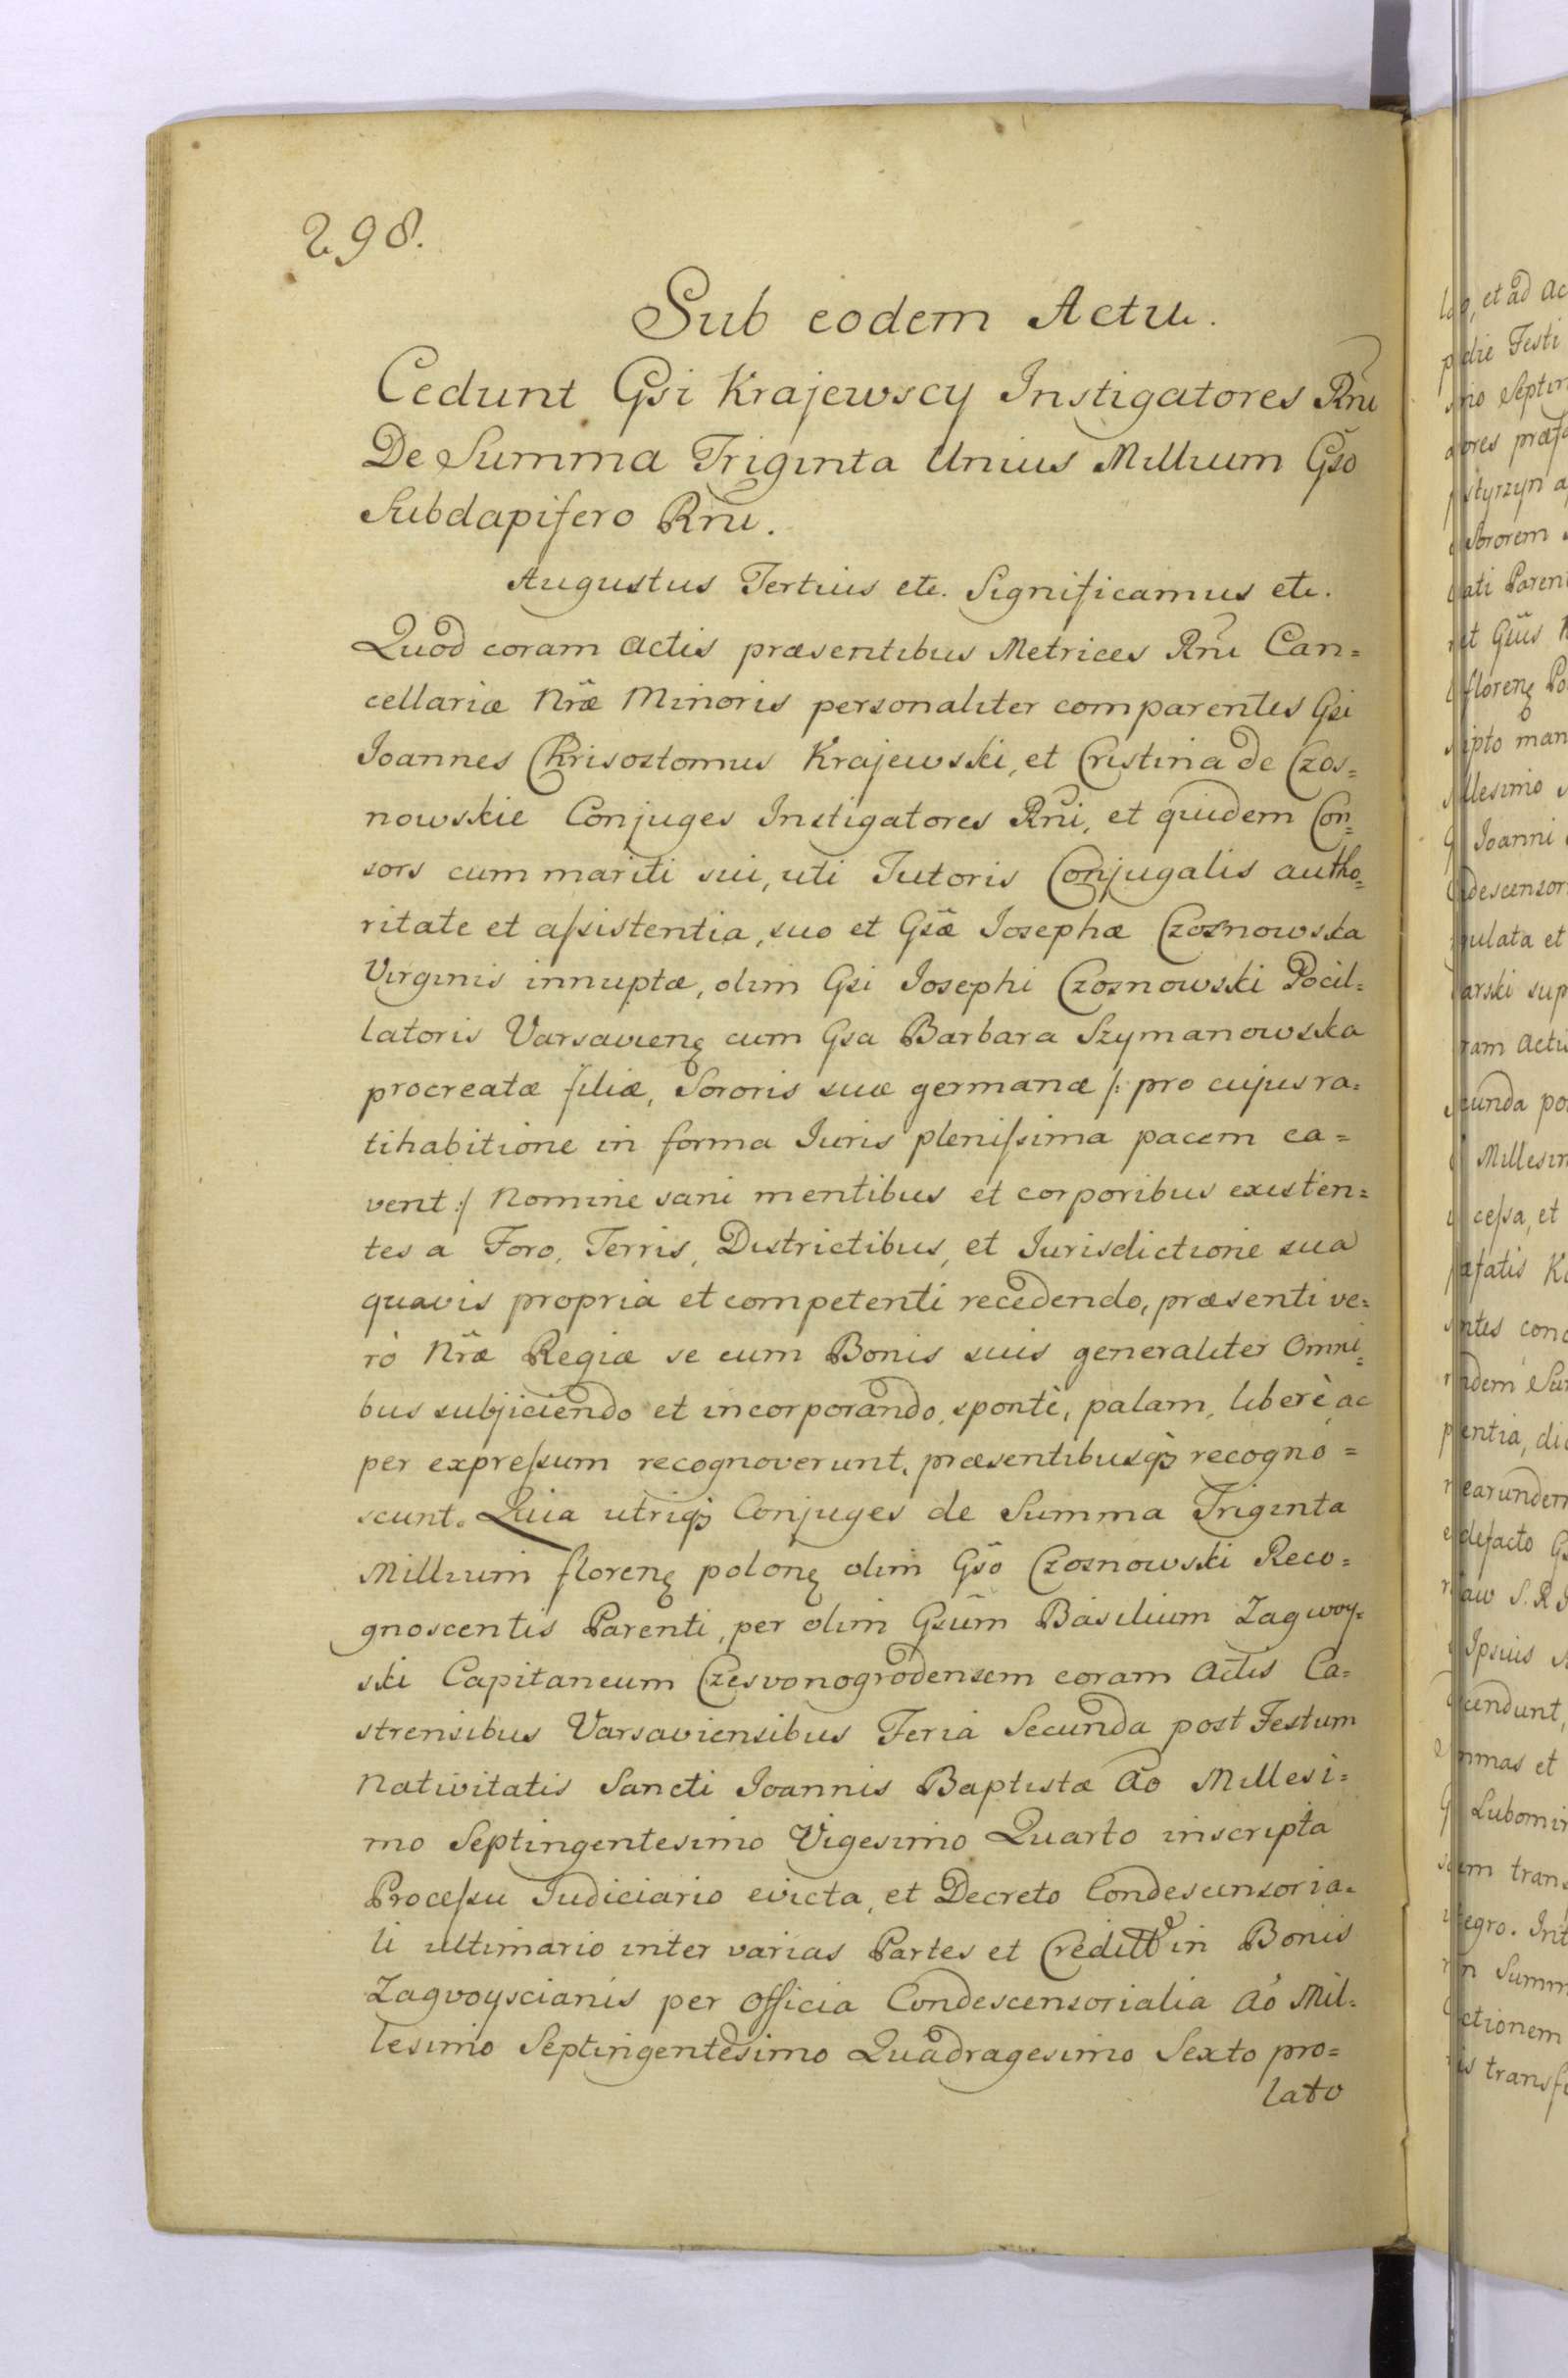 298.
Sub eodem Actu.
Cedunt Gsi Krajewscy Instigatores Rñi
De Summa Triginta Unius Millium Gso
Subdapifero Rni.
Augustus Tertius etc. Significamus etc.
Quod coram actis præsentibus Metrices Rñi Can=
cellariæ Nræ Minoris personaliter comparentes Gsi
Joannes Chrisostomus Krajewski, et Cristina de Czos=
nowskie Conjuges Instigatores Rñi, et quidem Con=
sors cum mariti sui, uti Tutoris Conjugalis autho=
ritate et assistentia, suo et Gsæ Josephæ Czosnowska
Virginis innuptæ, olim Gsi Josephi Czosnowski Pocil=
latoris Varsavienę cum Gsa Barbara Szymanowska
procreatæ filiæ, Sororis suæ germanæ /: pro cujus ra=
tihabitione in forma Juris plenissima pacem ca=
vent :/ Nomine sani mentibus et corporibus existen=
tes a Foro, Terris, Districtibus, et Jurisdictione sua
quavis propria et competenti recedendo, præsenti ve=
rò Nræ Regiæ se cum Bonis suis generaliter Omni=
bus subjiciendo et incorporando, spontè, palam, liberè ac
per expressum recognoverunt, præsentibusqꝫ recogno=
scunt. Quia utriqꝫ Conjuges de Summa Triginta
Millium florenę polonę olim Gso Czosnowski Reco=
gnoscentis Parenti, per olim Gsum Basilium Zagwoy=
ski Capitaneum Czesvonogrodensem coram Actis Ca=
strensibus Varsaviensibus Feria Secunda post Festum
Nativitatis Sancti Joannis Baptistæ Ao Millesi=
mo Septingentesimo Vigesimo Quarto inscripta
Processu Judiciario evicta, et Decreto Condescensoria=
li ultimario inter varias Partes et in Bonis
Zagvoyscianis per Officia Condescensorialia Ao Mil=
lesimo Septingentesimo Quadragesimo Sexto pro=
lato